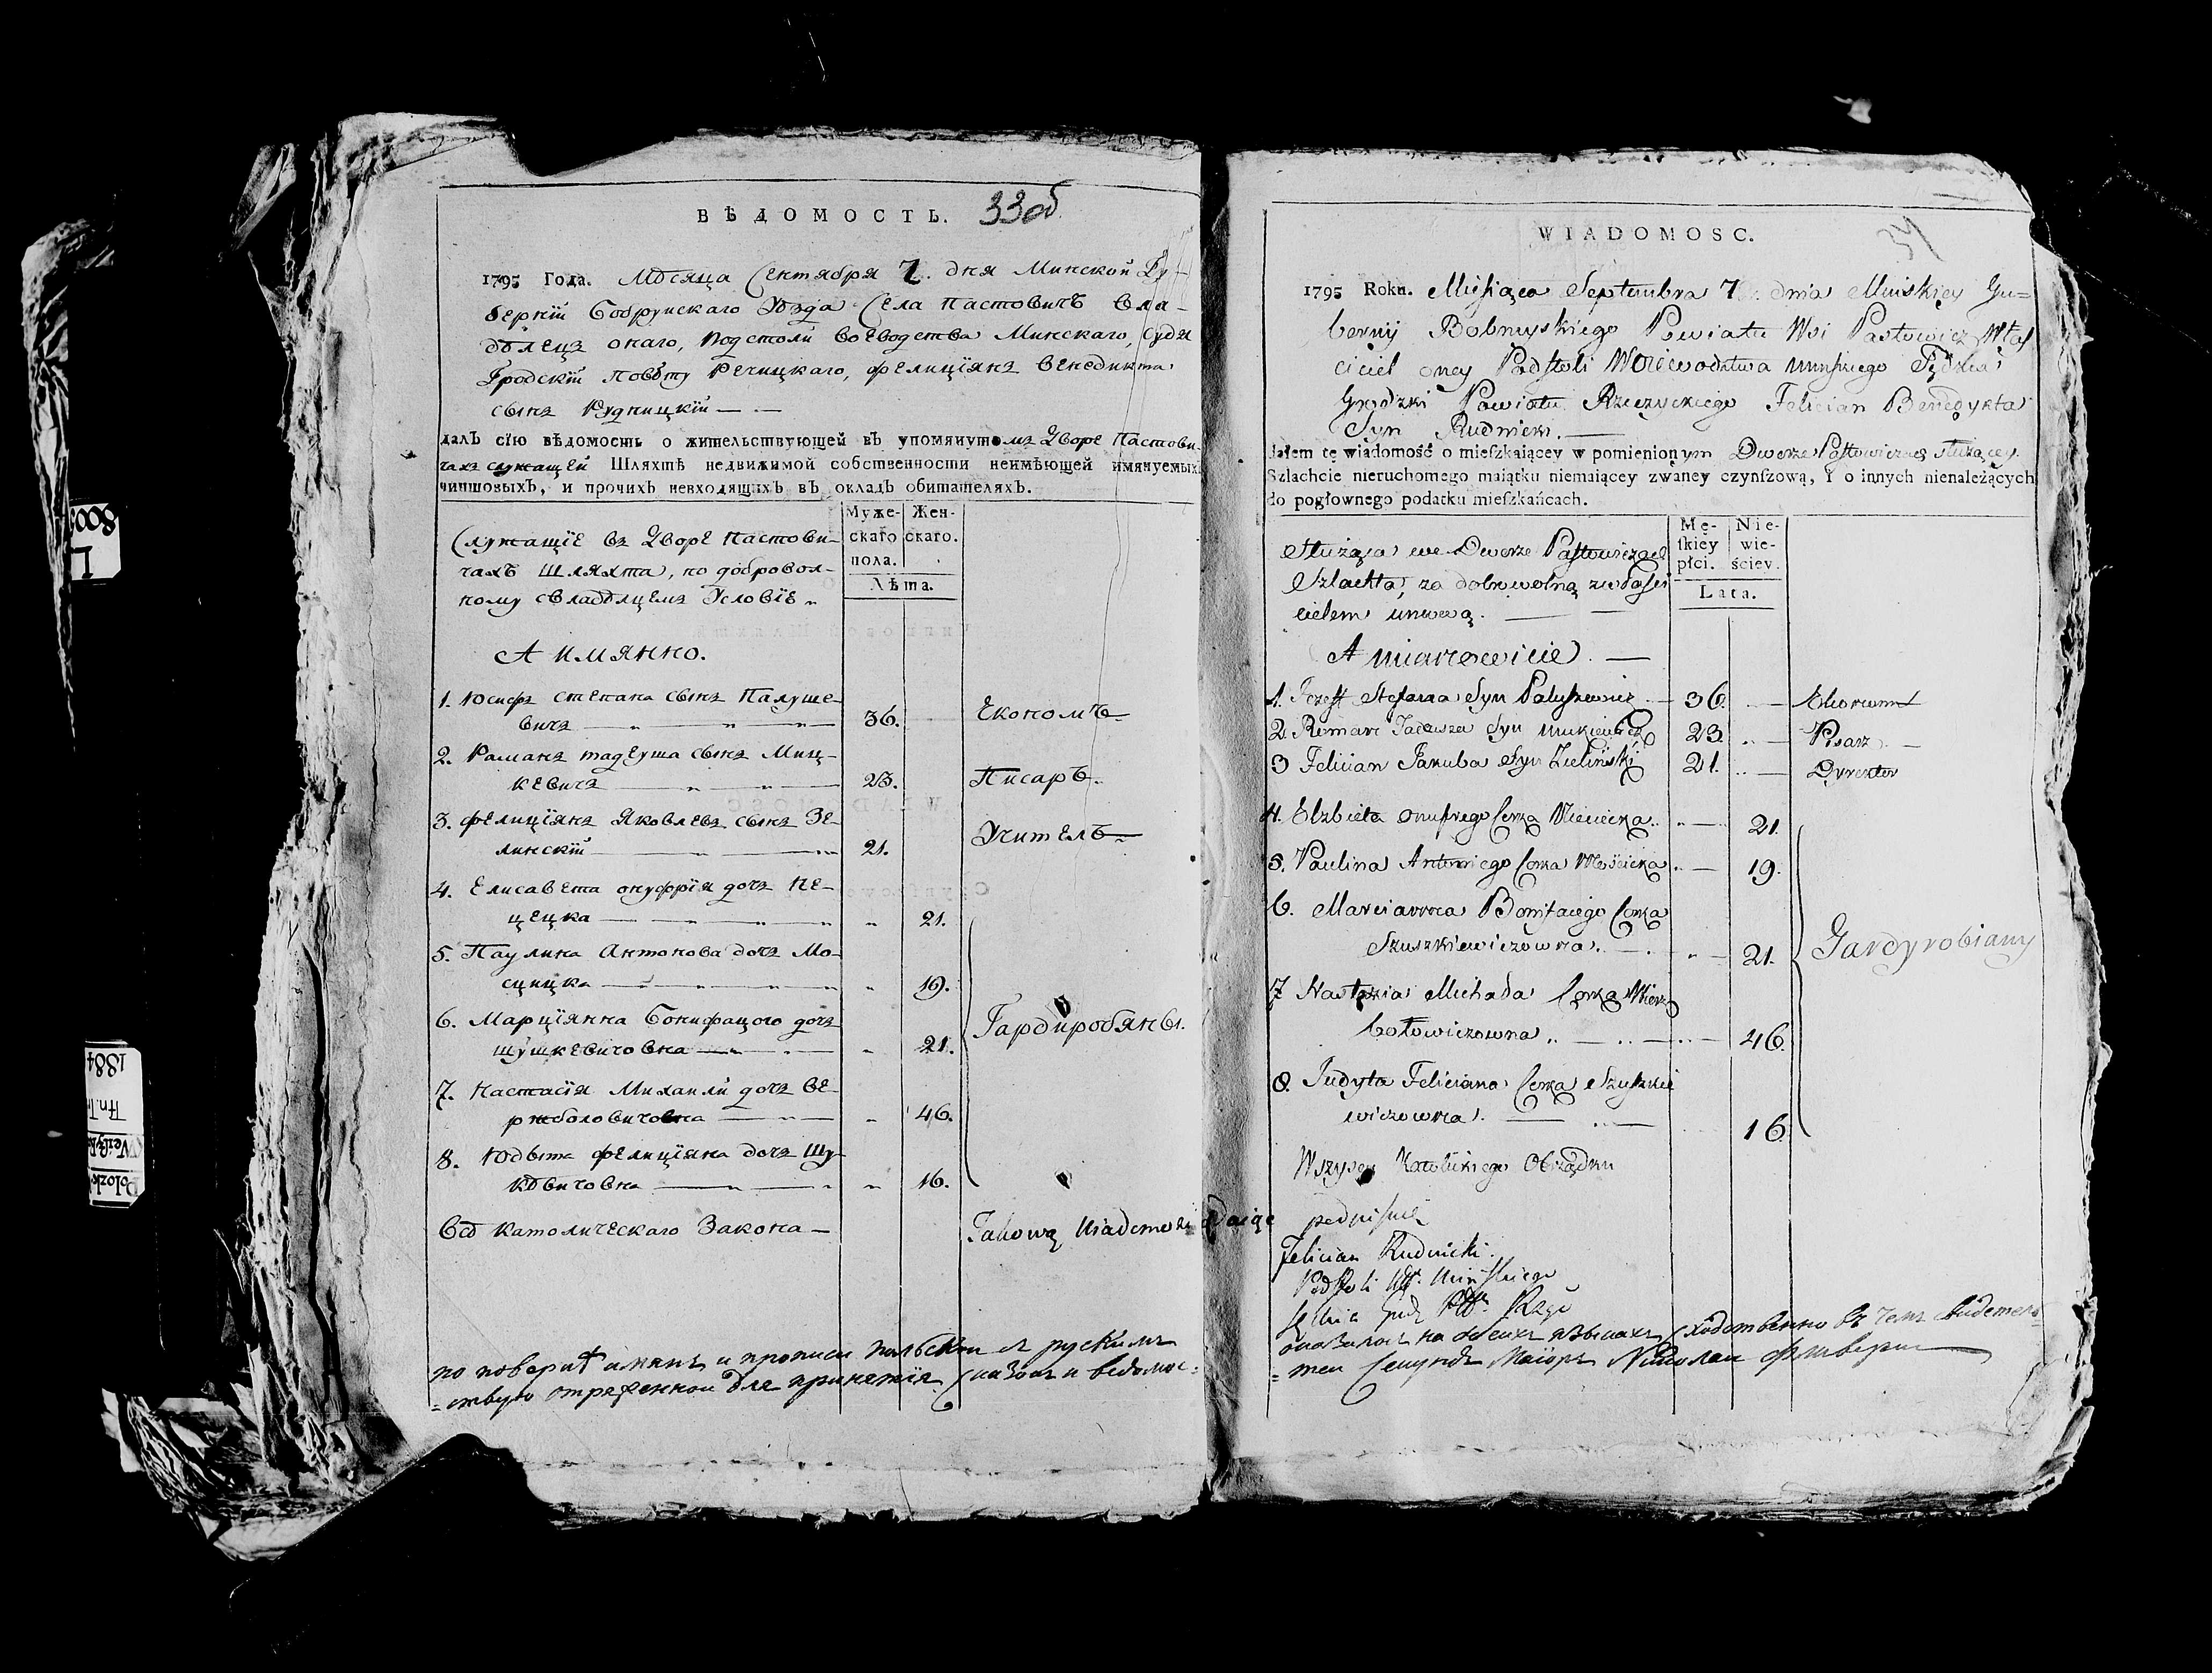 ВѢДОМОСТЬ. 33об
1795 Года. Мѣсяца Сентября 7. дня Минской Гу-
берніи Бобруйскаго Уѣзда Села Пастовичъ Вла-
дѣлецъ онаго, подстоли воеводства Минскаго, Судя
Гродскій повѣту Речицкаго, Фелиціянъ Бенедикта
сынъ Рудницкій —
далъ сію вѣдомость о жительствующей въ упомянутомъ Дворе Пастови-
чахъ служащей Шляхтѣ недвижимой собственности неимѣющей имянуемыхъ
чиншовыхъ, и прочихъ невходящихъ въ окладъ обитателяхъ.
Муже- Жен-
скаго скаго.
пола.
Лѣта.
Служащіе въ Дворе Пастови-
чахъ шляхта, по доброволь-
ному съ владѣлцемъ Условіе
А имянно.
1. Юсифъ Степана сынъ Палуше-
вичъ 36. Економъ
2. Раманъ тадеуша сынъ Миц-
кевичъ 23. Писаръ.
3. Фелиціянъ Яковлевъ сынъ Зе-
линскій 21. Учителъ
4. Елисавета онуфрія дочъ Не-
цецка 21.
5. Паулина Антонова дочъ Мо-
сцицка 19.
6. Марціянна Бонифацого дочъ
шушкевичовна 21. Гардиробяны.
7. Настасія Михаили дочъ Ве-
ржболовичовна 46.
8. Юдыта фелиціяна дочъ Шу-
кѣвичовна 16.
Всѣ католическаго Закона —
Takową Wiadomość daiąc
по поверкѣ имянъ и прописи польскъи съ рускимъ
=ствую отряженной для принятія сказокъ и ведомос=
WIADOMOSC. 34
1795 Roku. Miesiąca Septembra 7. dnia Minskiey Gu=
bernij Bobruyskiego Powiatu Wsi Pastowicz Włas
ciciel oney Podstoli Woiewodztwa Minskiego Sędzia
Grodzki Powiatu Rzeczyckiego Felician Benedykta
Syn Rudnicki.
dałem tę wiadomość o mieſzkaiącey w pomienionym Dworze Pastowiczach służącey
Szlachcie nieruchomego maiątku niemaiącey zwaney czynſzową, i o innych nienależących
do pogłownego podatku mieſzkańcach.
Mę- Nie-
ſkiey wie-
płci. ściey.
Lata.
Służąca we Dworze Pastowiczach
Szlachta, za dobrowolną z właści
cielem umową.
A mianowicie. —
1. Jozeff Stefana Syn Paluszewicz 36. Ekonom
2. Roman Tadeusza Syn Mickiewicz 23. Pisarz
3 Felician Jakuba Syn Zieliński 21. Dyrektor
4. Elzbieta Onufrego Corka Nieciecka 21.
5. Paulina Antoniego Corka Mościcka 19.
6. Marcianna Bonifacego Corka
Szuszkiewiczowna. 21. Gardyrobiany
7 Nastazia Michała Corka Wierz
bołowiczowna 46.
8. Judyta Feliciana Corka Szuszkie
wiczowna. 16.
Wszyscy Katolickiego Obrządku
podpisuię
Felician Rudnicki.
Podstoli Wd. Minskiego
Sędzia Grdz Pttu Rzgo
оказалось на обеихъ языкахъ сходственно въ чемъ свидетель=
=теи Секундъ Маіоръ Николай